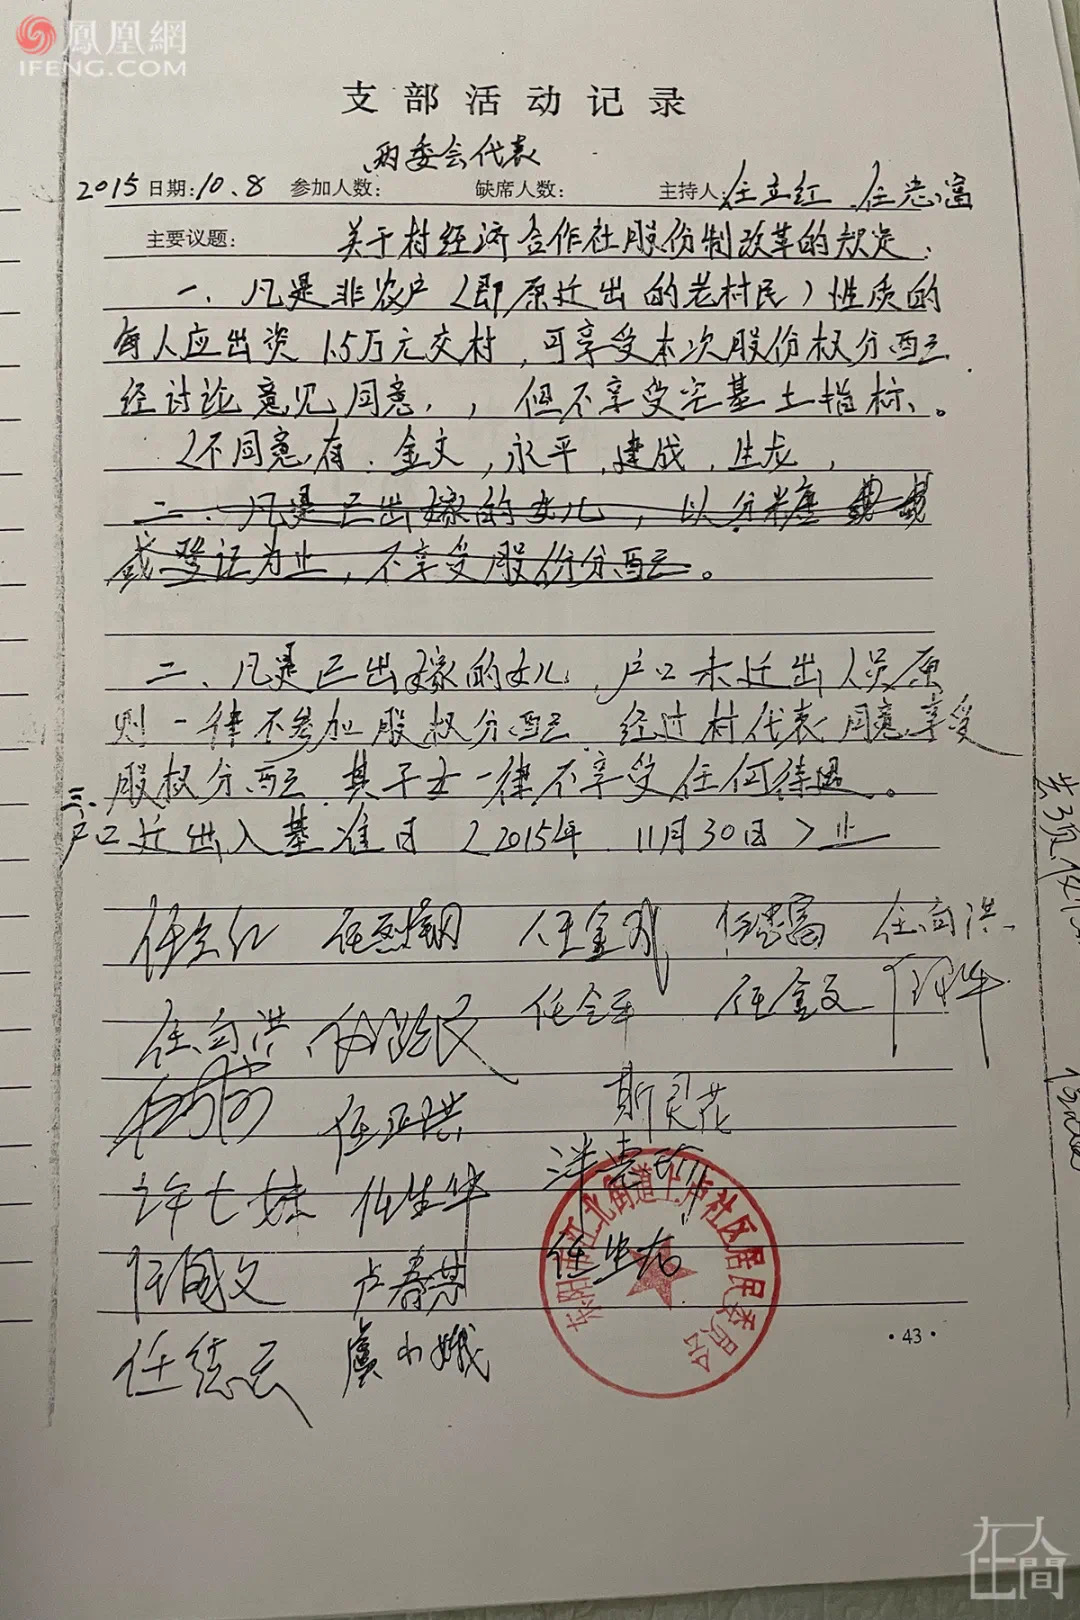 鳳凰網
IFENG.COM
支部活动记录
两委会代表
2015日期:10.8 参加人数: 缺席人数: 主持人:任立红 任忠富
主要议题: 关于村经济合作社股份制改革的规定:
一、凡是非农户(即原迁出的老村民)性质的
每人应出资1.5万元交村,可享受本次股份权分配
经讨论意见同意,,但不享受宅基土指标、。
(不同意有:金文,永平,建成,生龙,
二、凡是已出嫁的女儿,以分
或登记为止,不享受股份分配。
二、凡是已出嫁的女儿,户口未迁出人员原
则一律不参加股权分配 经过村代表同意享受
股权分配.其子女一律不享受任何待遇。
三、户口迁出入基准日(2015年 11月30日)止
任立红 任金 任忠富 任向洪
任向洪 任金平 任金文
任正洪 斯灵花
许七妹 任生华
任国文 卢春 任生龙
任德云 虞小娥
东阳市江北街道上卢社区居民委员会
·43·
在人间